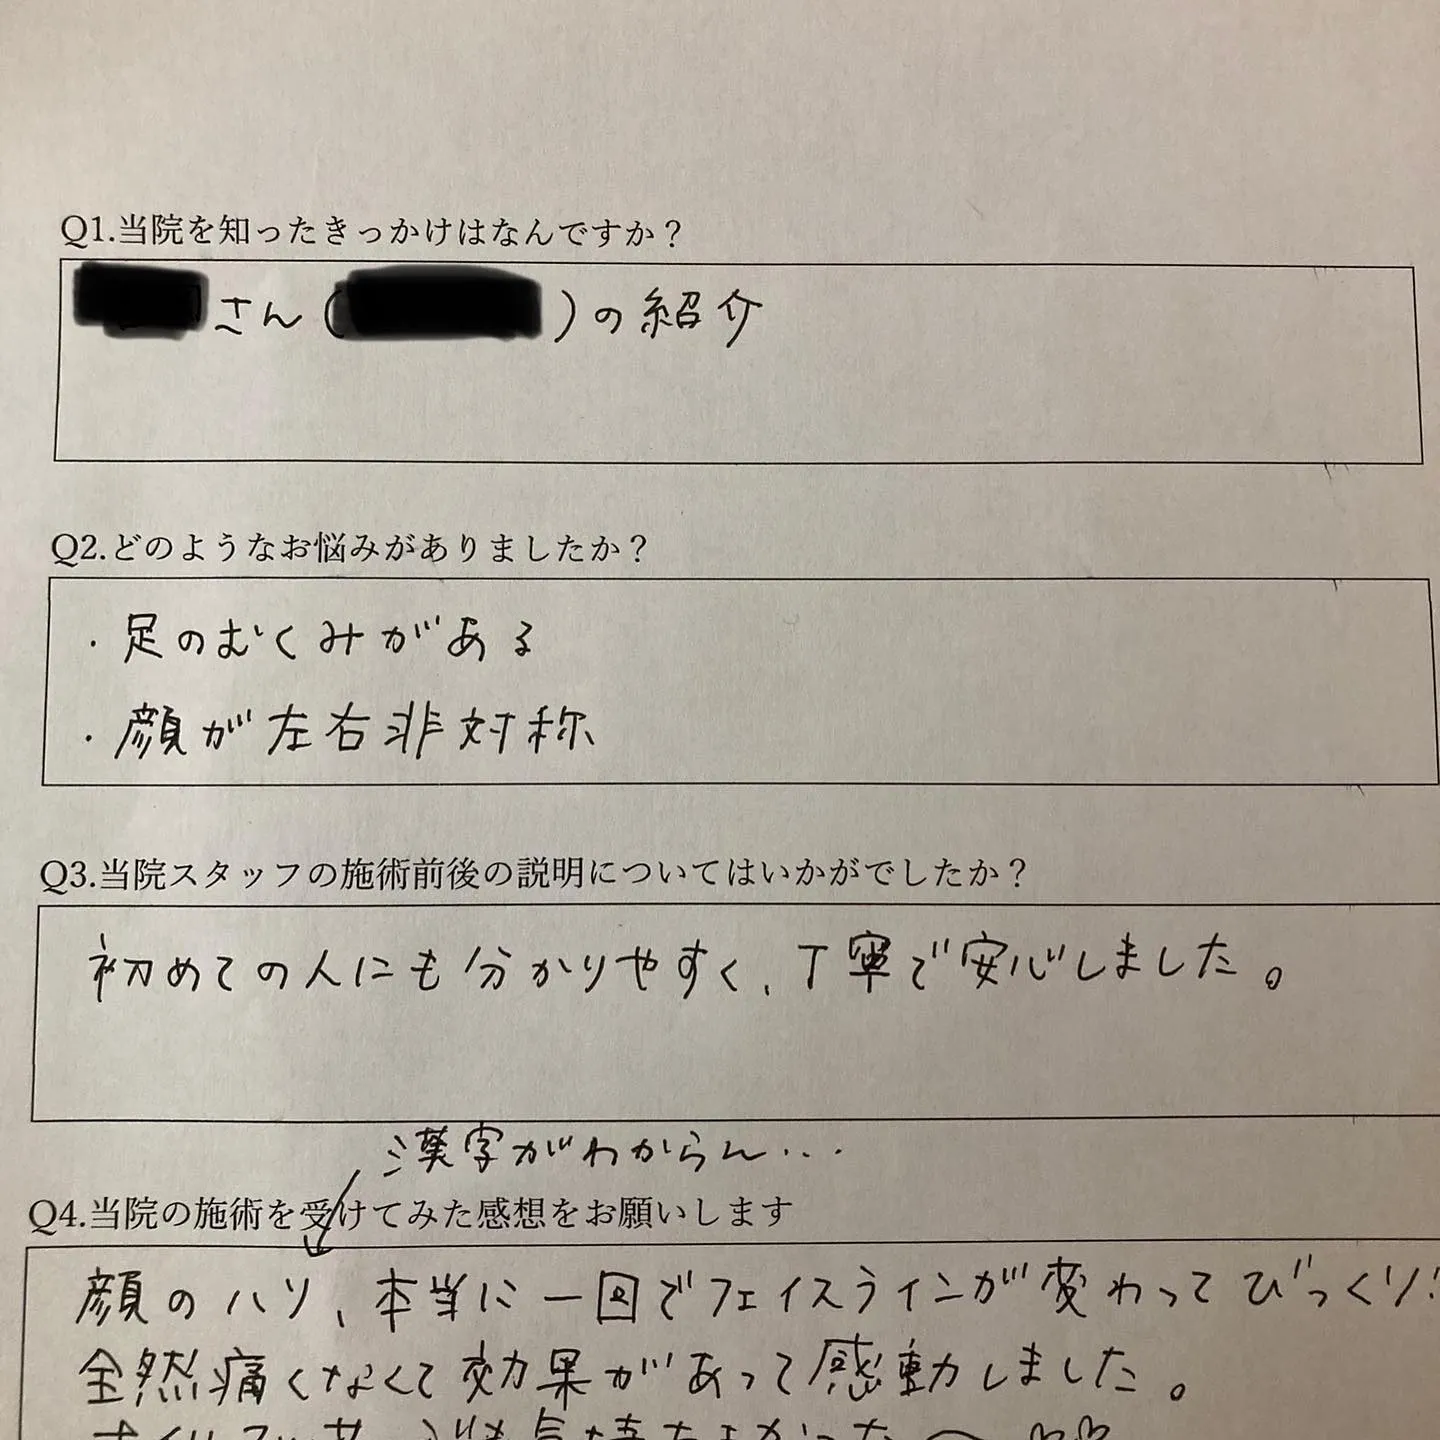 Q1.当院を知ったきっかけはなんですか？
さん（ ）の紹介
Q2.どのようなお悩みがありましたか？
・足のむくみがある
・顔が左右非対称
Q3.当院スタッフの施術前後の説明についてはいかがでしたか？
初めての人にも分かりやすく、丁寧で安心しました。
漢字がわからん…
Q4.当院の施術を受けてみた感想をお願いします
顔のハリ、本当に一回でフェイスラインが変わってびっくり!
全然痛くなくて効果があって感動しました。
オイルマッサージも気持ちよかった〜♡♡